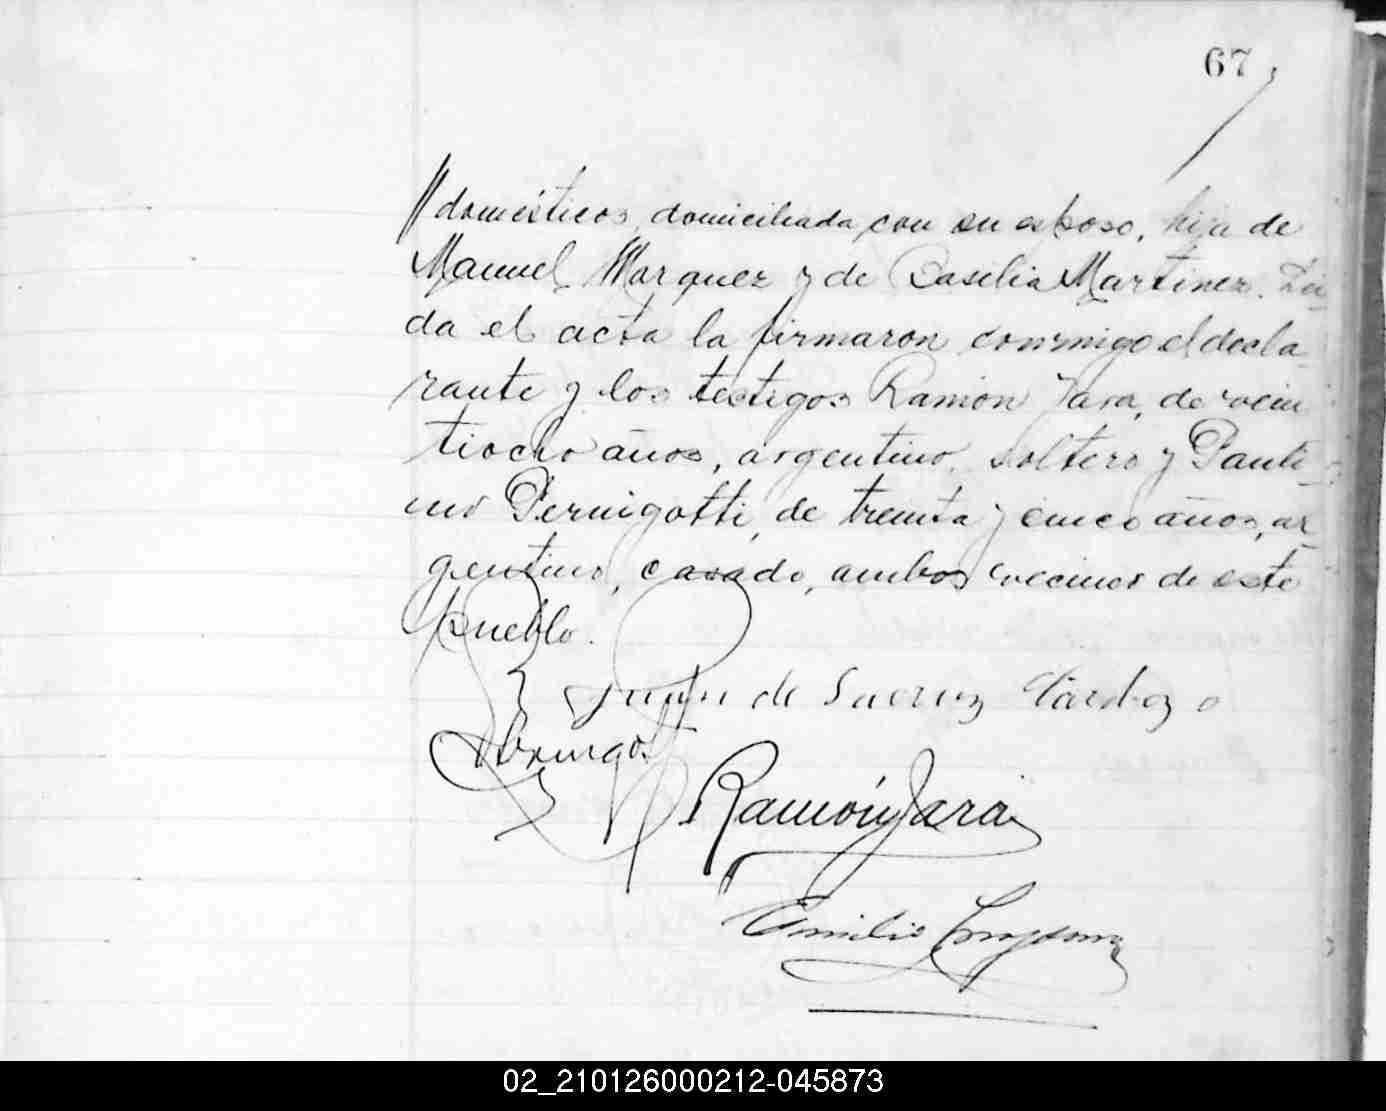 67
// domésticos, domiciliada con su esposo, hija de
Manuel Marquez y de Basilia Martinez. Lei-
da el acta la firmaron conmigo el decla-
rante y los testigos Ramón Jara, de vein
tiocho años, argentino, soltero y Pauli-
no Pernigotti, de treinta y cinco años, ar-
gentino, casado, ambos vecinos de este
pueblo.
Juan de
Ramón Jara
Emilio
02_210126000212-045873